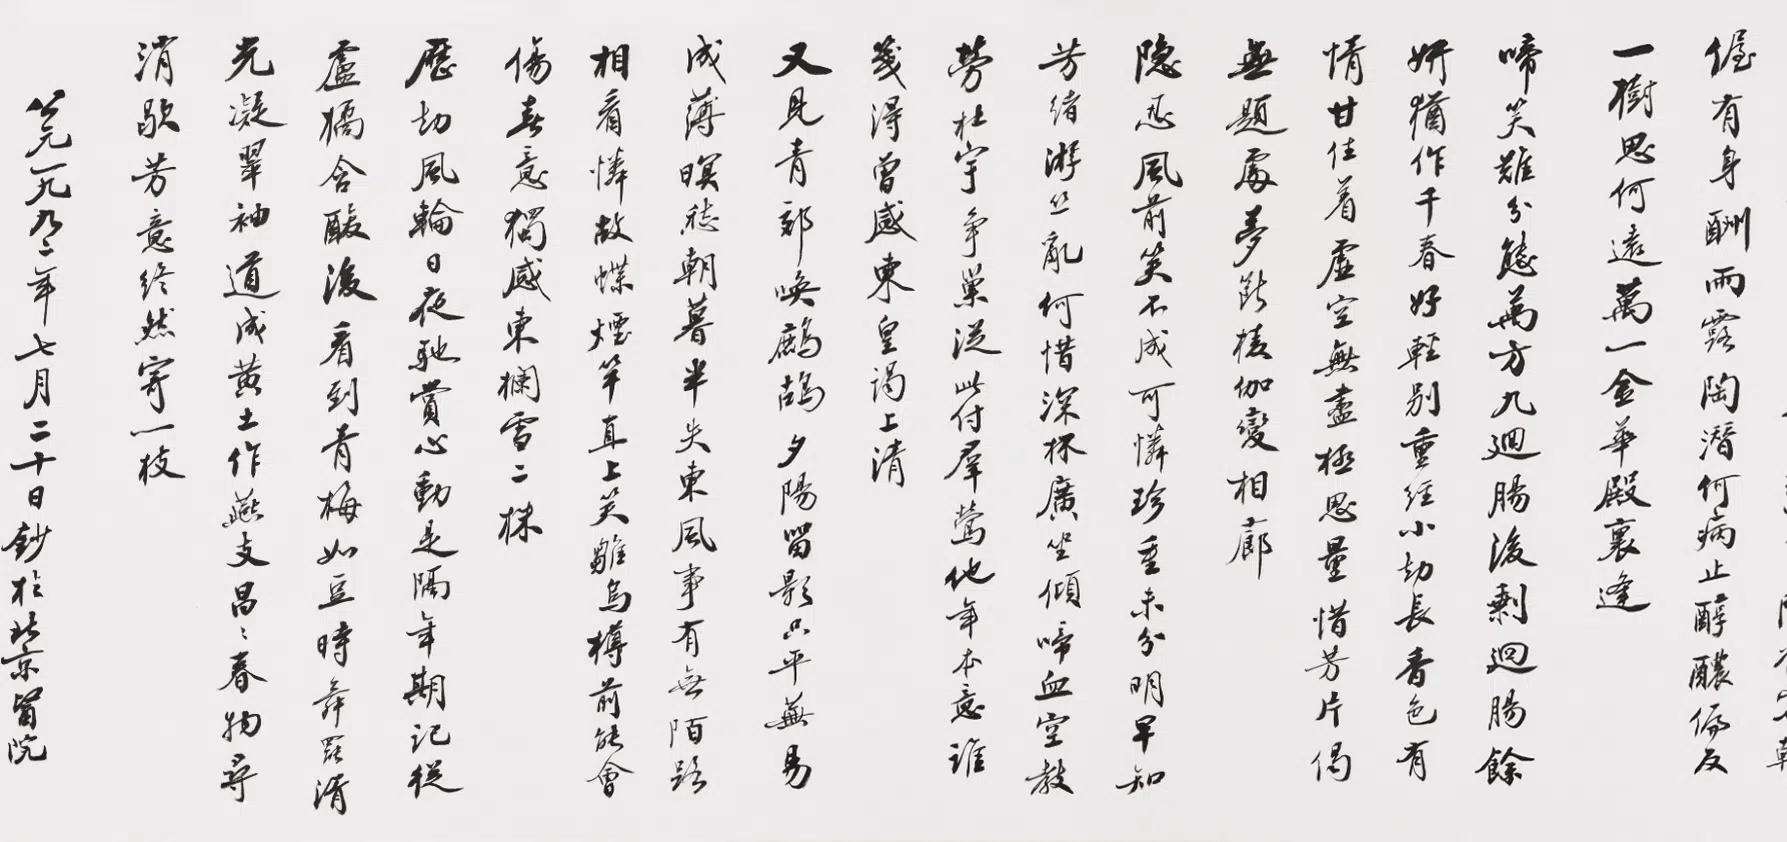 偓有身酬雨露陶潛何病止醇醲偏反
一樹思何遠萬一金華殿裏逢
啼笑難分態萬方九迴腸後剩迴腸餘
妍猶作千春好輕别重經小劫長香色有
情甘住着虛空無盡極思量惜芳片偈
無題處夢斷棱伽變相廊
隐忍風前笑不成可憐珍重未分明早知
芳緒游絲亂何惜深杯廣坐傾啼血空教
勞杜宇爭巢從此付羣鶯他年本意誰
箋得曾感東皇謁上清
又見青郊喚鷓鴣夕陽留影只平蕪易
成薄暝愁朝暮半失東風事有無陌路
相看憐故蝶煙竿直上笑雛烏樽前能會
傷春意獨感東欄雪二株
歷劫風輪日夜馳賞心動是隔年期記從
盧橘含酸後看到青梅如豆時舞罷清
光凝翠袖道成黄土作燕支昌〻春物尋
消歇芳意終然寄一枝
公元一九九二年七月二十日鈔於北京醫院